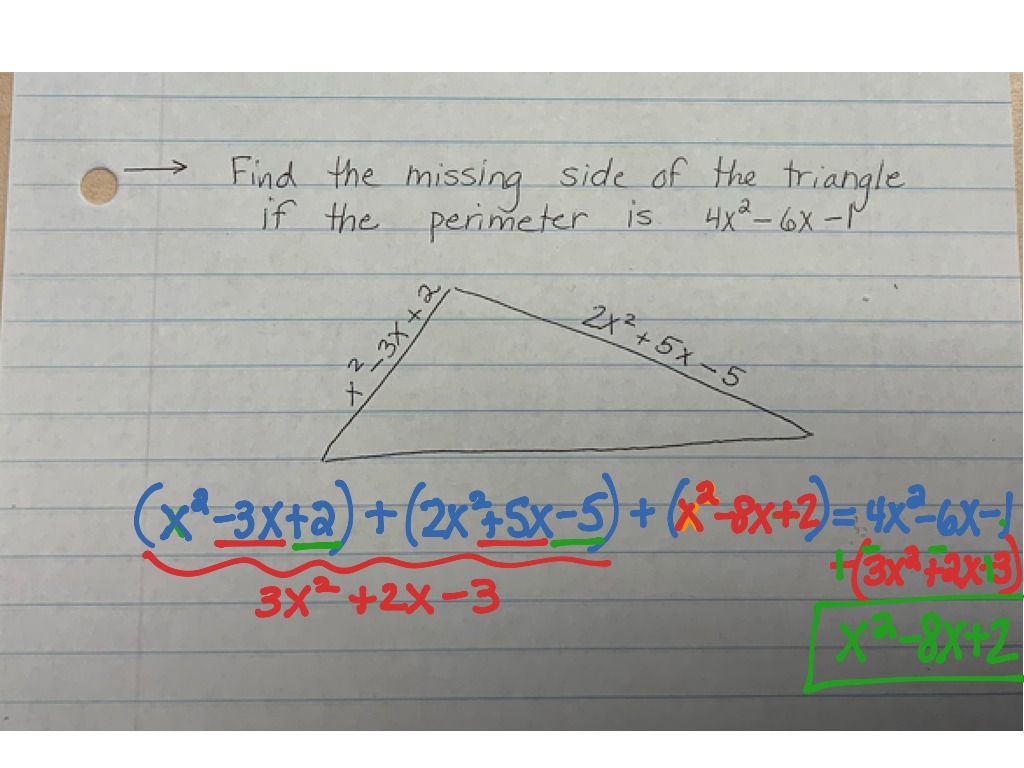 → Find the missing side of the triangle
if the perimeter is 4x² - 6x - 1
x² - 3x + 2
2x² + 5x - 5
(x² - 3x + 2) + (2x² + 5x - 5) + (x² - 8x + 2) = 4x² - 6x - 1
+(-3x² - 2x + 3)
3x² + 2x - 3
x² - 8x + 2